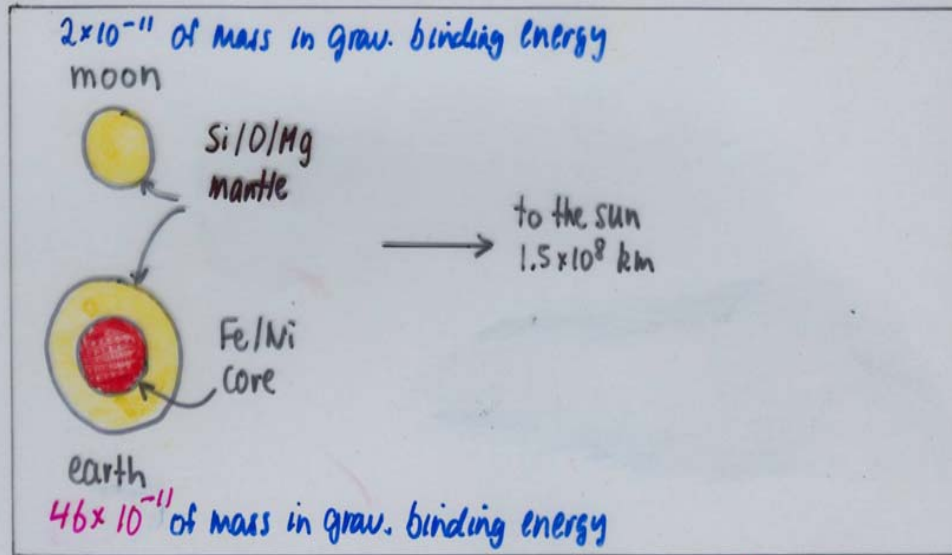 2×10⁻¹¹ of mass in grav. binding energy
moon
Si/O/Mg
mantle
to the sun
1.5×10⁸ km
Fe/Ni
core
earth
46×10⁻¹¹ of mass in grav. binding energy